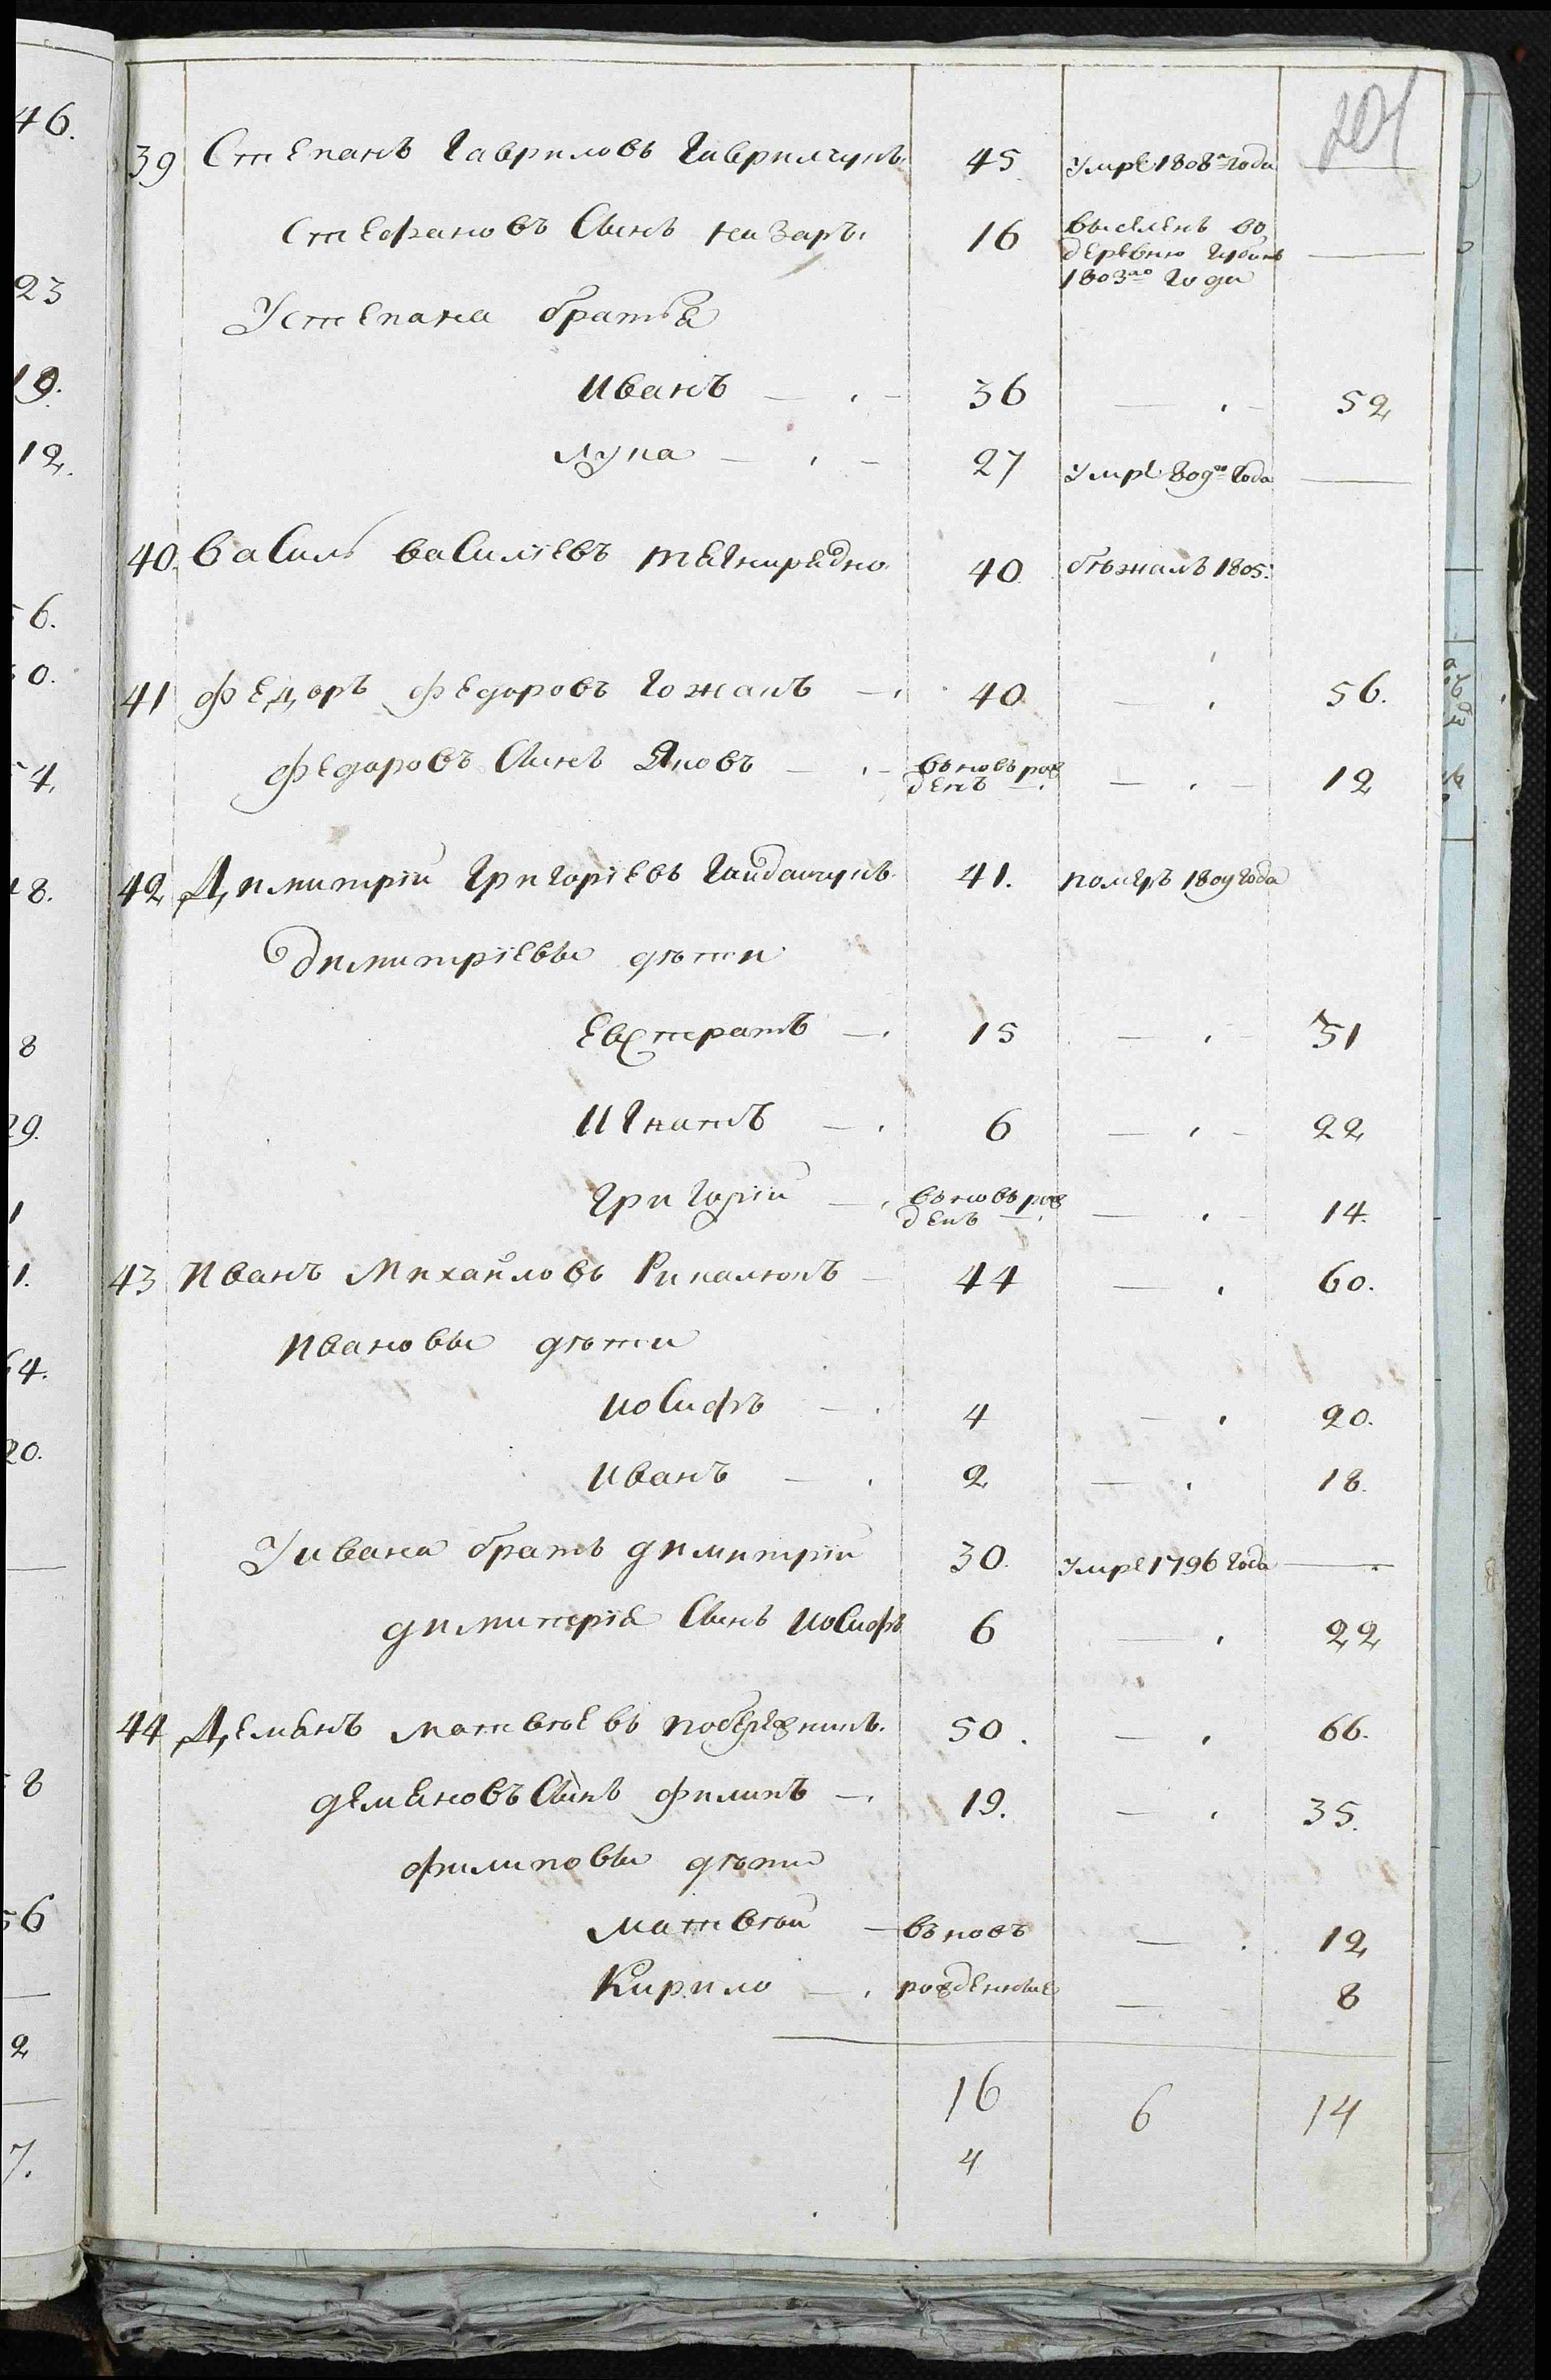 204
39 Степанъ Гавриловъ Гаврилчукъ 45 умре 1808го года —
Стефановъ Синъ Назаръ 16 выселенъ во
деревню
1803го года —
У степана братья
Иванъ — 36 — 52
Лука — 27 умре 809го года —
40 Василь Василіевъ 40 бѣжалъ 1805.
41 Федоръ Федоровъ Гожанъ — 40 — 56.
Федоровъ Синъ Яковъ — въновь рож
денъ — — 12
42 Димитрій Григоріевъ Гайдайчукъ 41. померъ 1809 года
Димитріевы дѣти
Евстратъ — 15 — 31
Игнатъ — 6 — 22
Григорій — въновь рож
денъ — — 14.
43 Иванъ Михайловъ Рикалюкъ — 44 — 60.
Ивановы дѣти
Иосифъ — 4 — 20.
Иванъ — 2 — 18.
У ивана братъ димитрій 30. умре 1796 года —
димитрія Синъ Иосифъ 6 — 22
44 Демянъ Матвѣевъ побережникъ. 50. — 66.
демяновъ Синъ филипъ — 19. — 35.
филиповы дѣти
Матвѣй — въновь — 12
Кирило — рожденные — 8
16 6 14
4